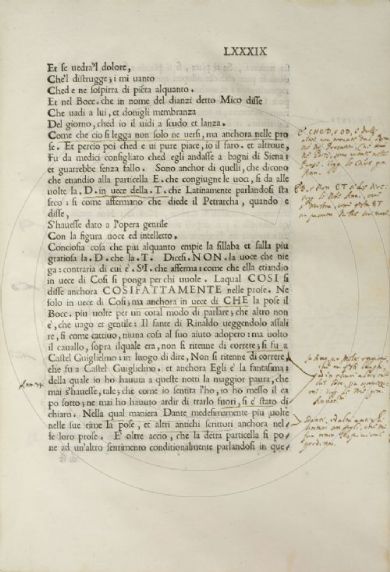 LXXXIX
Et se uedra'l dolore,
Che'l distrugge; i mi uanto
Ched e ne sospirra di pièta alquanto.
Et nel Bocc. che in nome del dianzi detto Mico disse
Che uadi a lui, et donigli membranza
Del giorno, ched io il uidi a scudo et lanza.
Come che cio si legga non solo ne uersi, ma anchora nelle pro
se. Et percio poi ched e ui pure piace, io il faro. et altroue,
Fu da medici consigliato ched egli andasse a bagni di Siena;
et guarrebbe senza fallo. Sono anchor di quelli, che dicono
che etiandio alla particella E. che congiugne le uoci, si da alle
uolte la, D. in uece della. T. che Latinamente parlandosi sta
seco: si come affermano che diede il Petrarcha, quando e
disse,
S'hauesse dato a l'opera gentile
Con la figura uoce ed intelletto.
Conciosia cosa che piu alquanto empie la sillaba et falla piu
gratiosa la. D. che la. T. Dicesi. NON. la uoce che nie
ga: contraria di cui è. SI. che afferma: come che ella etiandio
in uece di Cosi si ponga per chi uuole. Laqual COSI si
disse anchora COSIFATTAMENTE nelle prose. Ne
solo in uece di Cosi; ma anchora in uece di CHE la pose il
Bocc. piu uolte per un cotal modo di parlare; che altro non
è, che uago et gentile: Il fante di Rinaldo ueggendolo assali
re, si come cattiuo, niuna cosa al suo aiuto adopero: ma uolto
il cauallo, sopra ilquale era, non si ritenne di correre; si fu a
Castel Guiglielmo: in luogo di dire, Non si ritenne di correre,
che fu a Castel Guiglielmo. et anchora Egli è la fantasima;
della quale io ho hauuta a queste notti la maggior paura, che
mai s'hauesse, tale; che come io sentita l'ho, io ho messo il ca
po sotto; ne mai ho hauuto ardir di trarlo fuori, si è stato di
chiaro. Nella qual maniera Dante medesimamente piu uolte
nelle sue rime la pose, et altri antichi scrittori anchora nel
le loro prose. E' oltre accio, che la detta particella si po
ne ad un'altro sentimento conditionalmente parlandosi in que